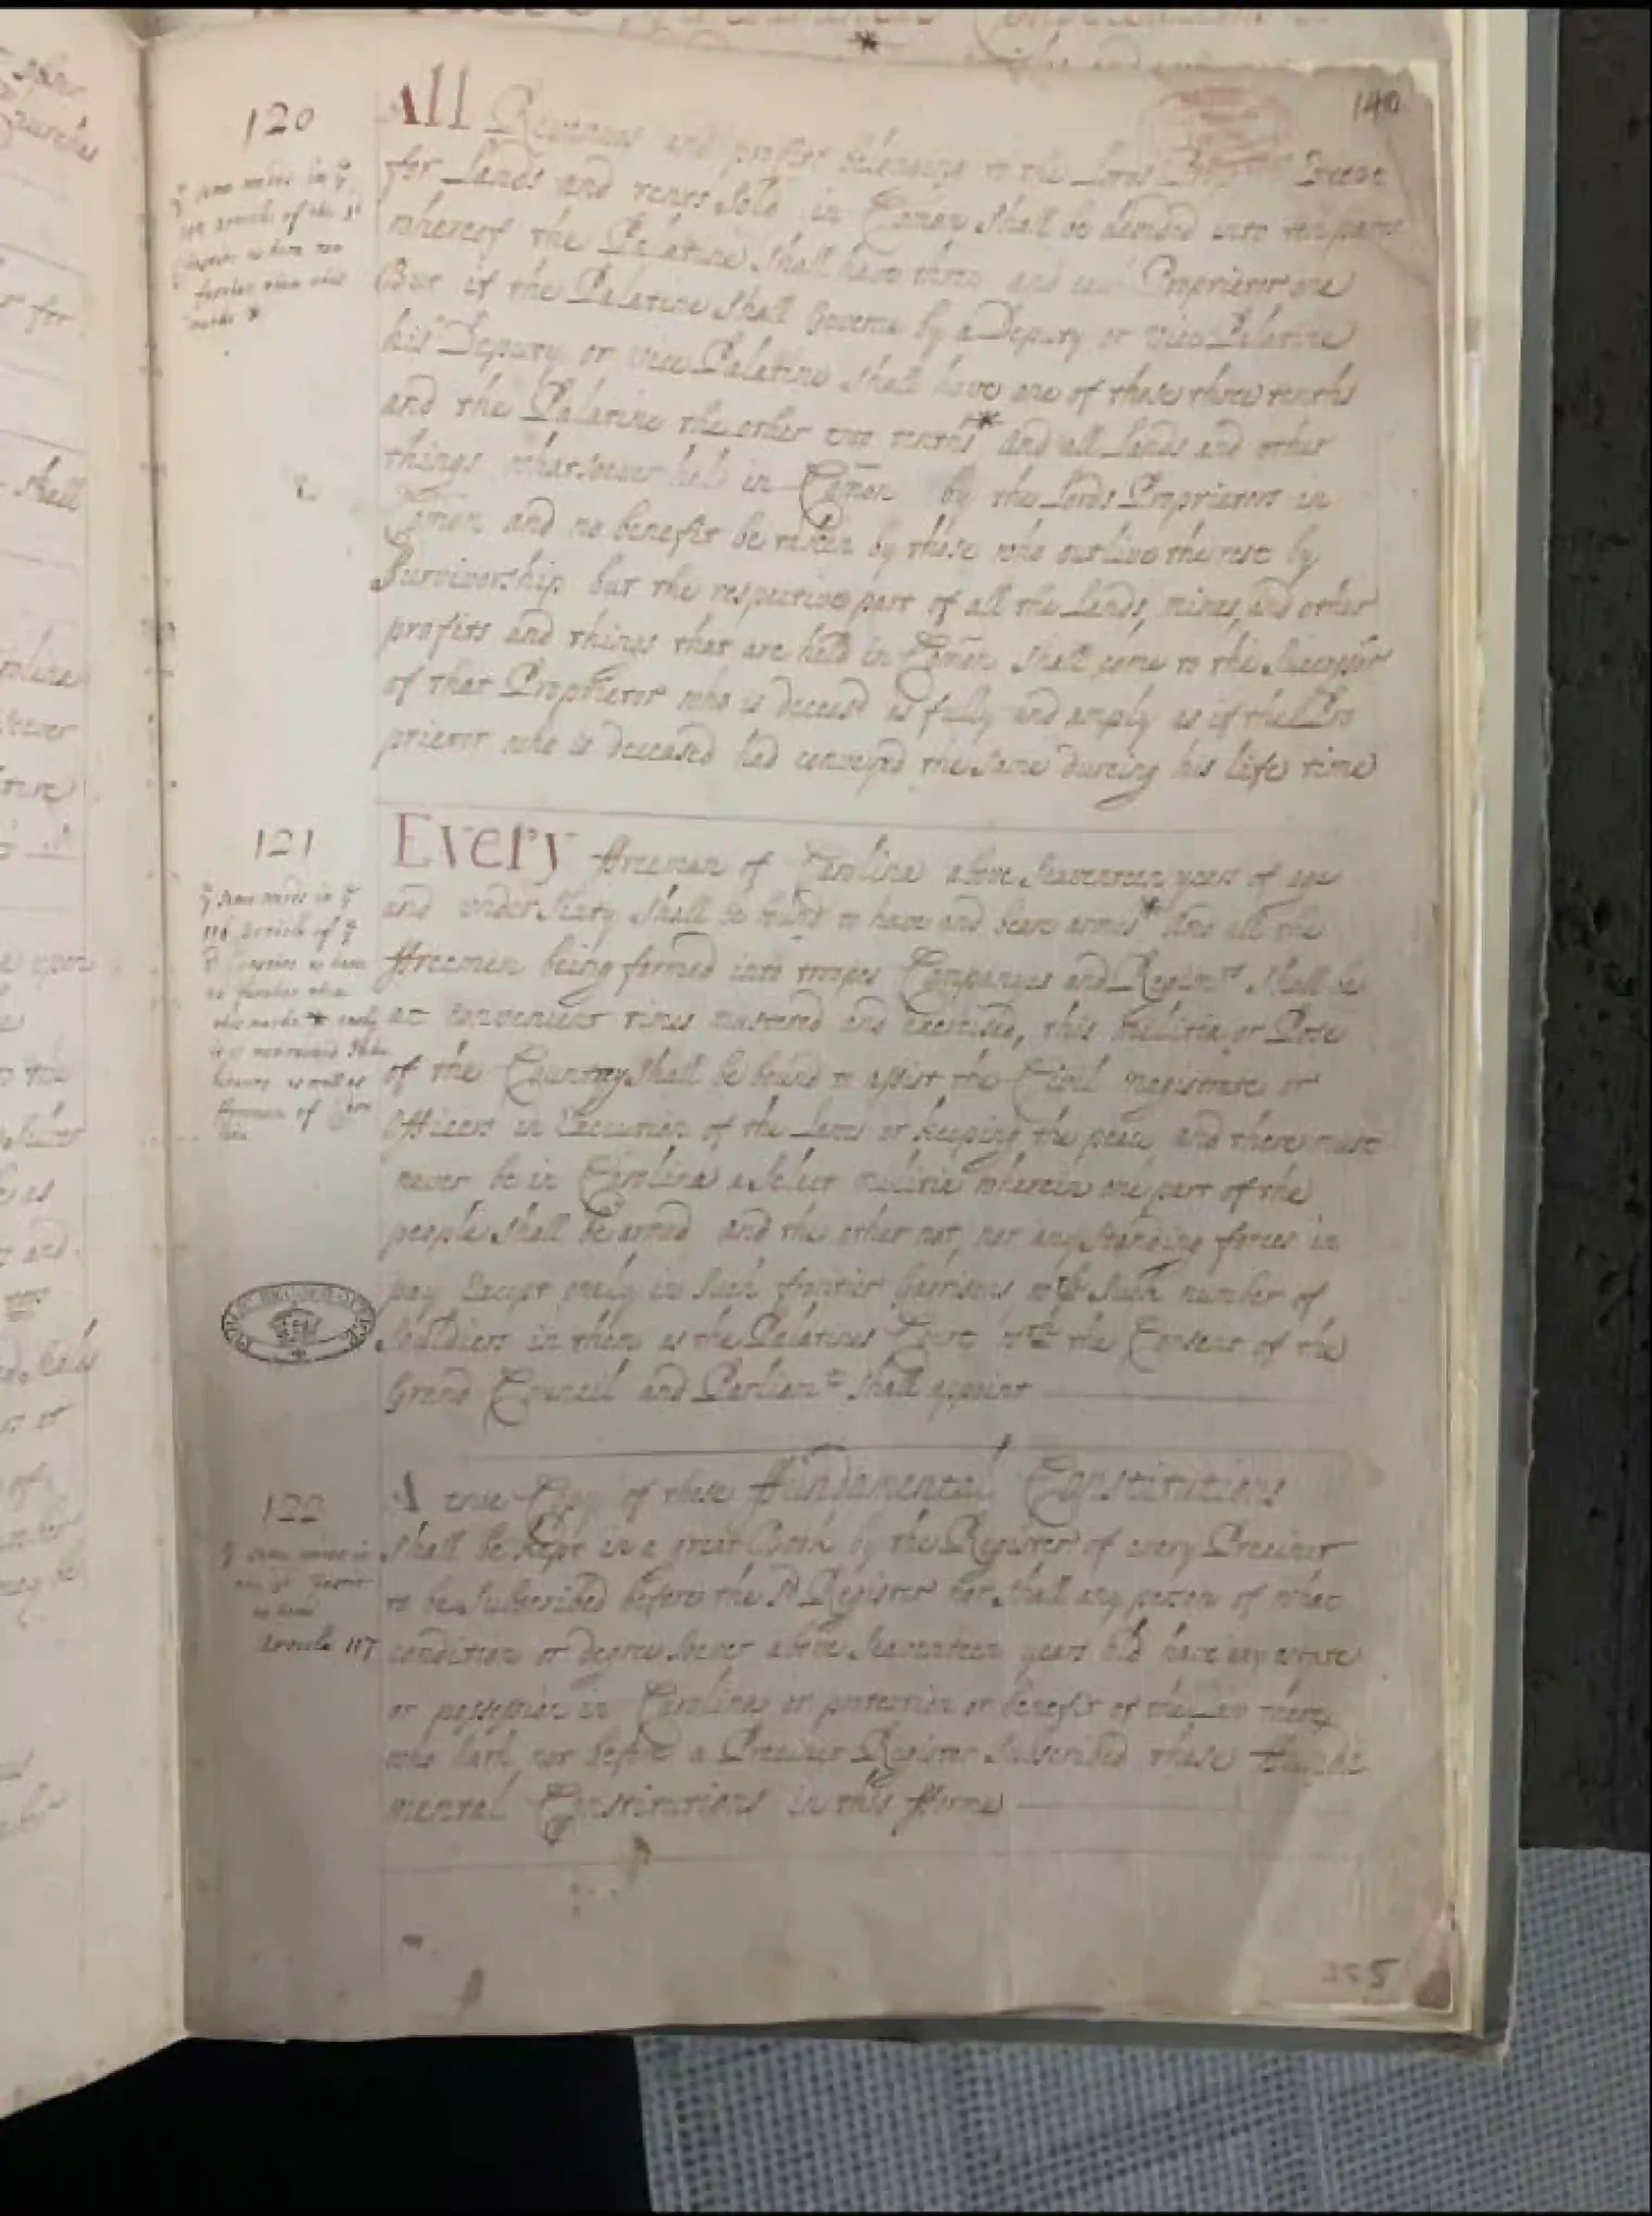 140
120
All Revenues and profitts belonging to the Lords Except
for Lands and rents sold in Comon shall be devided into ten parts
whereof the Palatine shall have three and each Proprietor one
But if the Palatine shall Governe by a Deputy or vice Palatine
his Deputy or vice Palatine shall have one of those three tenths
and the Palatine the other two tenths* And all Lands and other
things whatsoever held in Comon by the Lords Proprietors in
Comon and no benefit be taken by those who outlive the rest by
Survivorship but the respective part of all the Lands, mines, and other
profits and things that are held in Comon shall come to the Successor
of that Proprietor who is deceasd as fully and amply as if the Pro
prietor who is deceased had conveyed the same during his life time
ye same words in ye
article of the
further than this
marke *
121
Every ffreeman of Carolina above Seaventeen years of age
and under Sixty shall be bound to have and beare armes* And all the
ffreemen being formed into troopes Companyes and Regimts shall be
at convenient times mustered and exercised, this Millitia or Posse
of the Country shall be bound to assist the Civil magistrate or
Officers in Execution of the Laws or keeping the peace and there must
never be in Carolina a Select militia wherein one part of the
people shall be armed and the other not, nor any standing forces in
pay Except onely in such frontier Garrisons wth such number of
Souldiers in them as the Palatines Court wth the Consent of the
Grand Council and Parliamt shall appoint
ye same words in ye
116 Article of ye
no further than
this marke * only
as well as
ffreemen of Caro
lina
PUBLIC RECORD OFFICE
122
A true Copy of these ffundamental Constitutions
shall be kept in a great Book by the Register of every Precinct
to be Subscribed before the sd Register nor shall any person of what
condition or degree soever above Seaventeen years old have any estate
or possession in Carolina or protection or benefit of the Law there
who hath not before a Precinct Register Subscribed these ffunda
mental Constitutions in this fforme
ye same words in
Article 117